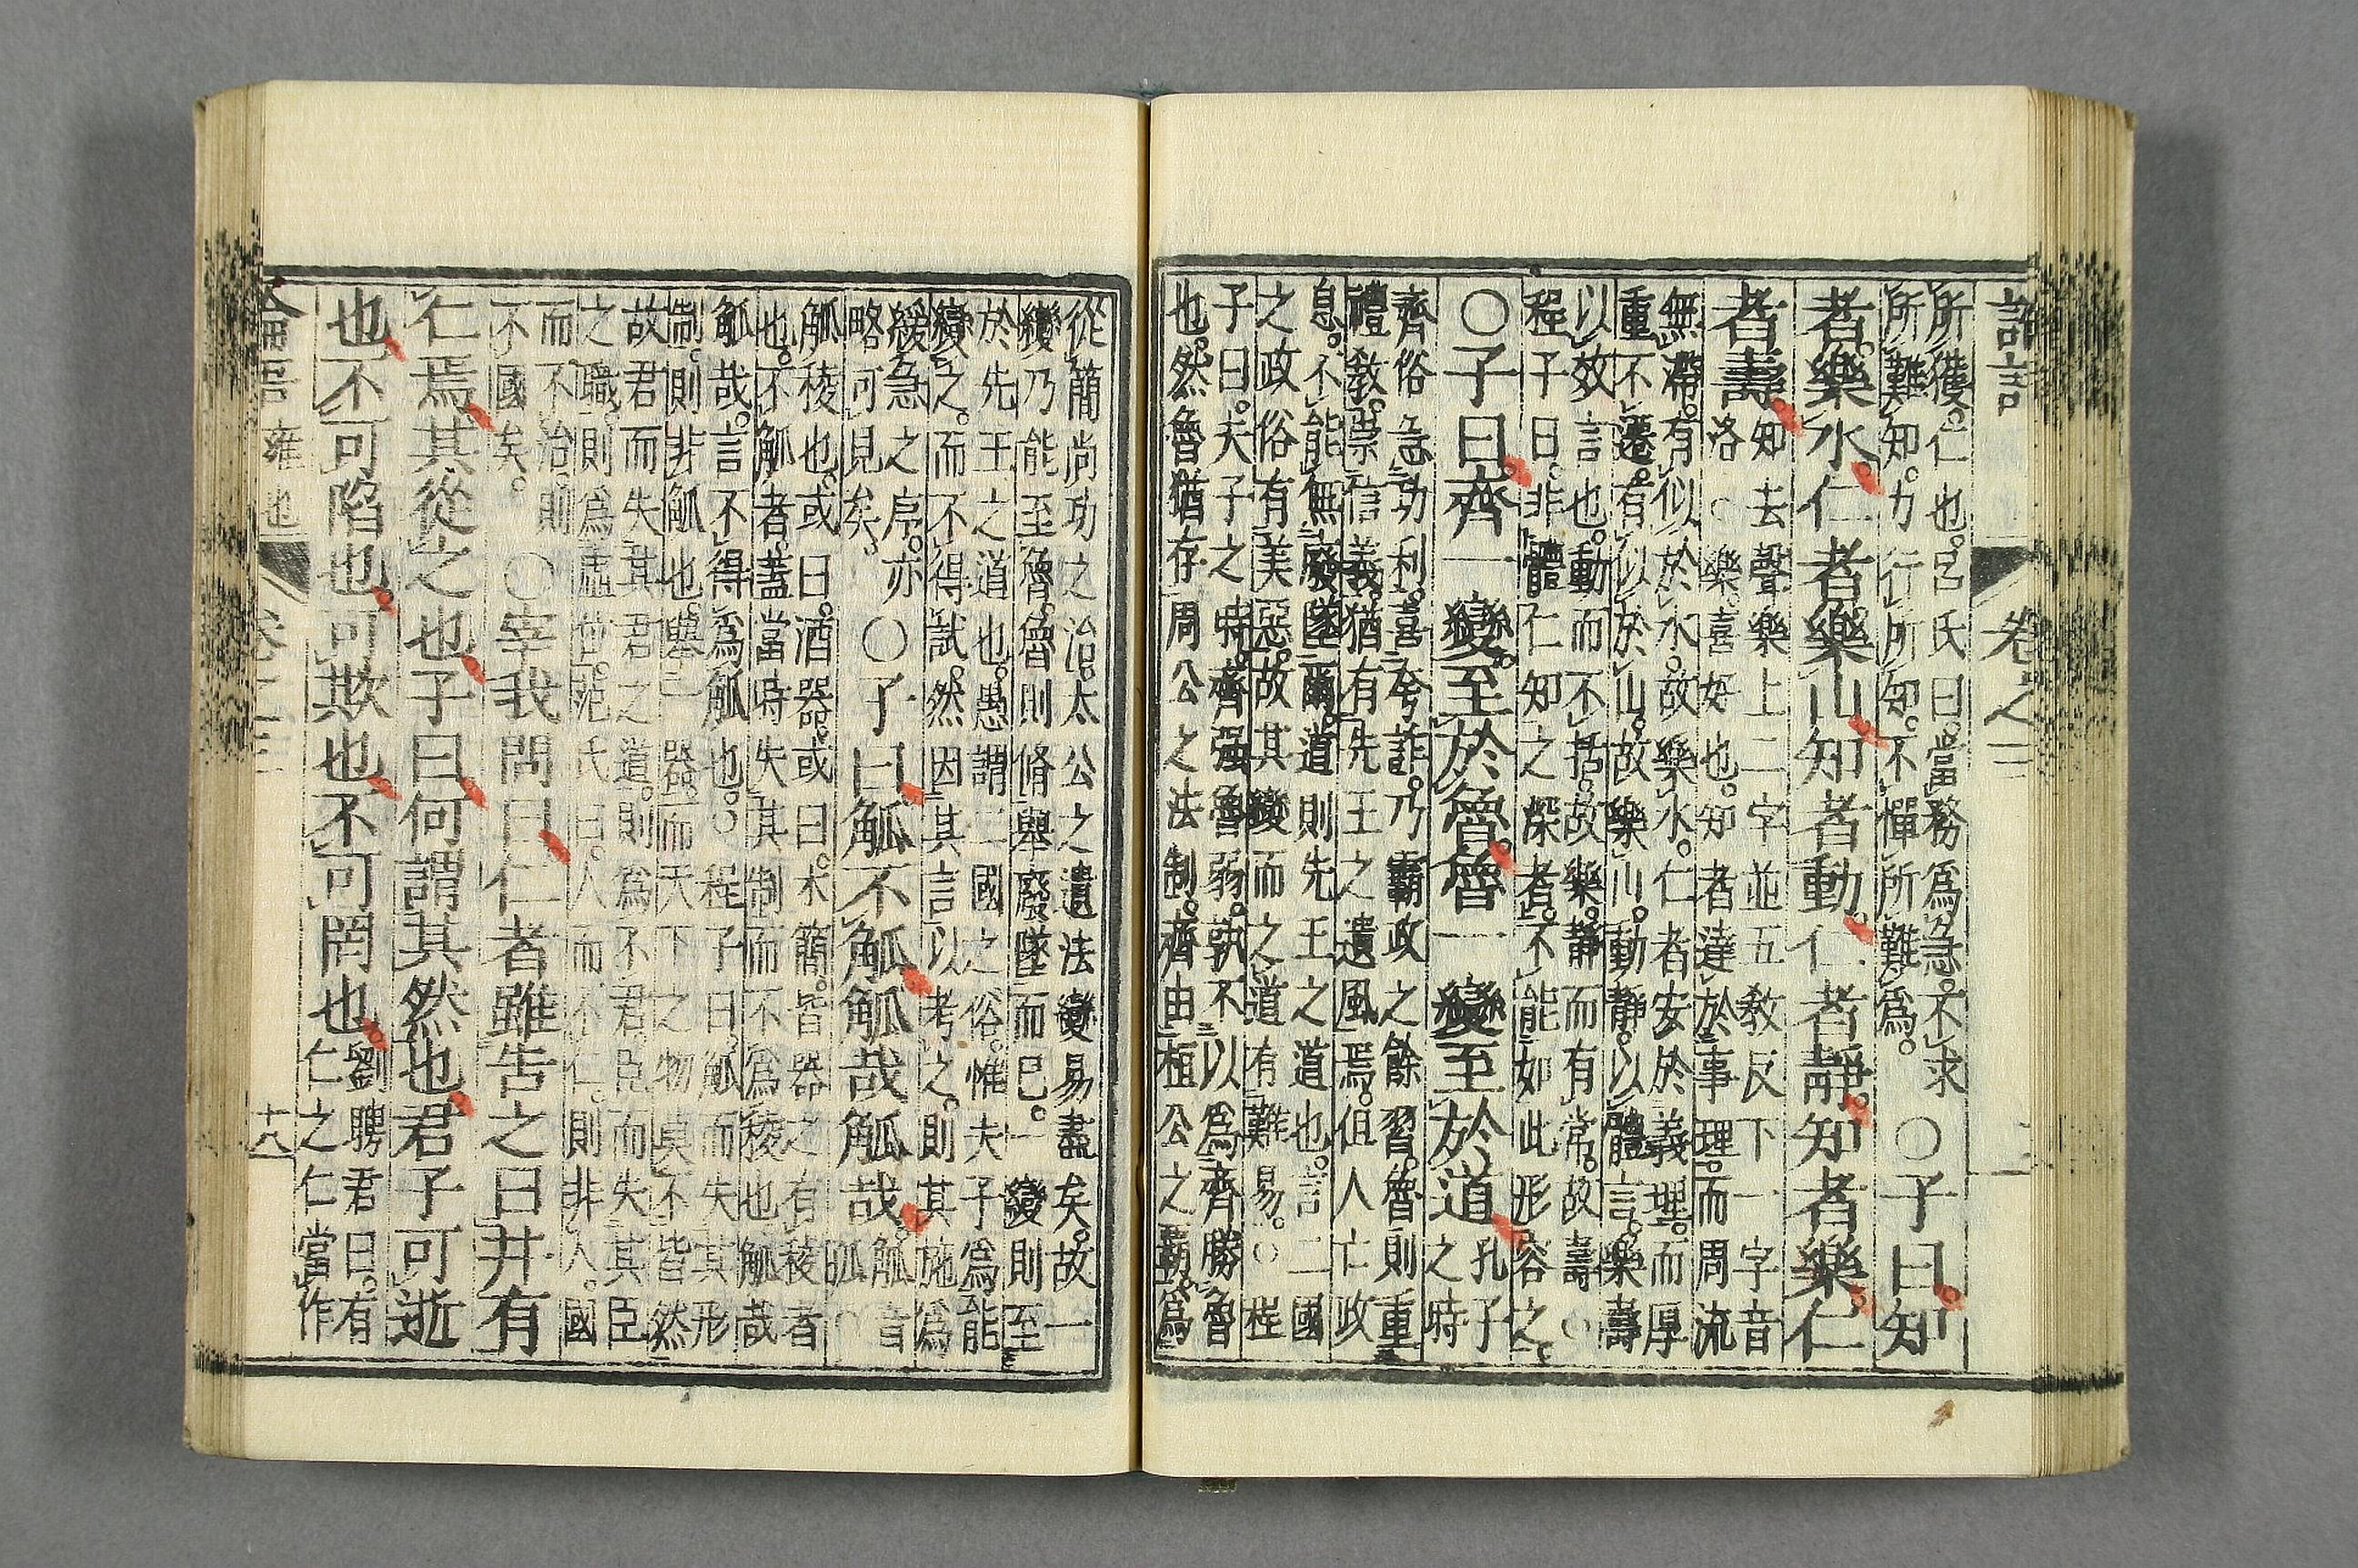 論語 卷之三
所獲。仁也。呂氏曰。當務爲急。不求
所難知。力行所知。不憚所難爲。
○子曰知
者樂水仁者樂山知者動仁者靜知者樂仁
者壽
知去聲樂上二字並五敎反下一字音
洛○樂喜好也。知者達於事理。而周流
無滯。有似於水。故樂水。仁者安於義理。而厚
重不遷。有似於山。故樂山。動靜。以體言。樂壽
以效言也。動而不括。故樂。靜而有常。故壽。○
程子曰。非體仁知之深者。不能如此形容之。
○子曰齊一變至於魯魯一變至於道
孔子
之時
齊俗急功利。喜夸詐。乃霸政之餘習。魯則重
禮敎。崇信義。猶有先王之遺風焉。但人亡政
息。不能無廢墜爾。道則先王之道也。言二國
之政俗有美惡。故其變而之道有難易。○程
子曰。夫子之時。齊强魯弱。孰不以爲齊勝魯
也。然魯猶存周公之法制。齊由桓公之霸。爲
從簡尚功之治。太公之遺法變易盡矣。故一
變乃能至魯。魯則脩舉廢墜而已。一變則至
於先王之道也。愚謂二國之俗。惟夫子爲能
變之。而不得試。然因其言以考之。則其施爲
緩急之序。亦
略可見矣。
○子曰觚不觚觚哉觚哉
觚音
孤○
觚稜也。或曰。酒器。或曰。木簡。皆器之有稜者
也。不觚者。蓋當時失其制而不爲稜也。觚哉
觚哉。言不得爲觚也。○程子曰。觚而失其形
制。則非觚也。舉一器。而天下之物莫不皆然。
故君而失其君之道。則爲不君。臣而失其臣
之職。則爲虛位。范氏曰。人而不仁。則非人。國
而不治。則
不國矣。
○宰我問曰仁者雖告之曰井有
仁焉其從之也子曰何謂其然也君子可逝
也不可陷也可欺也不可罔也
劉聘君曰。有
仁之仁當作
論語 雍也 卷之三 十八